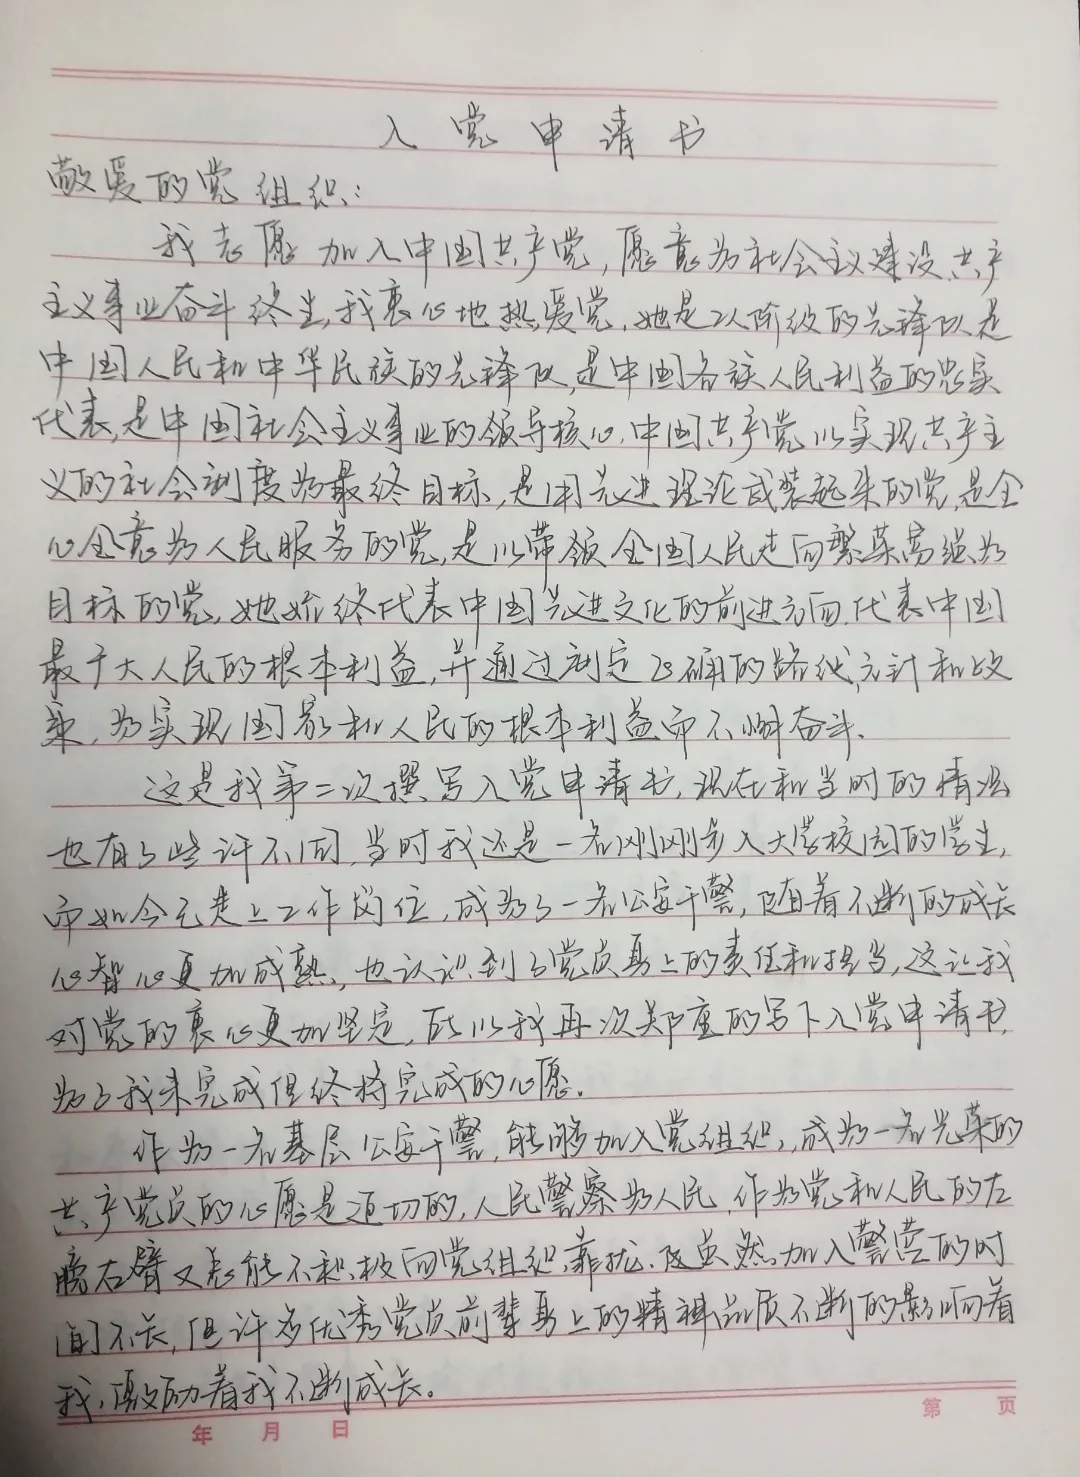 入党申请书
敬爱的党组织:
我志愿加入中国共产党,愿意为社会主义建设共产
主义事业奋斗终生,我衷心地热爱党,她是工人阶级的先锋队是
中国人民和中华民族的先锋队,是中国各族人民利益的忠实
代表,是中国社会主义事业的领导核心,中国共产党以实现共产主
义的社会制度为最终目标,是用先进理论武装起来的党,是全
心全意为人民服务的党,是以带领全国人民走向繁荣富强为
目标的党,她始终代表中国先进文化的前进方向,代表中国
最广大人民的根本利益,并通过制定正确的路线,方针和政
策,为实现国家和人民的根本利益而不懈奋斗.
这是我第二次撰写入党申请书,现在和当时的情况
也有了些许不同,当时我还是一名刚刚步入大学校园的学生,
而如今已走上工作岗位,成为了一名公安干警,随着不断的成长
心智也更加成熟,也认识到了党员身上的责任和担当,这让我
对党的衷心更加坚定,所以我再次郑重的写下入党申请书,
为了我未完成但终将完成的心愿.
作为一名基层公安干警,能够加入党组织,成为一名光荣的
共产党员的心愿是迫切的,人民警察为人民,作为党和人民的左
膀右臂又怎能不积极向党组织靠拢.我虽然加入警营的时
间不长,但许多优秀党员前辈身上的精神品质不断的影响着
我,激励着我不断成长。
年 月 日 第 页